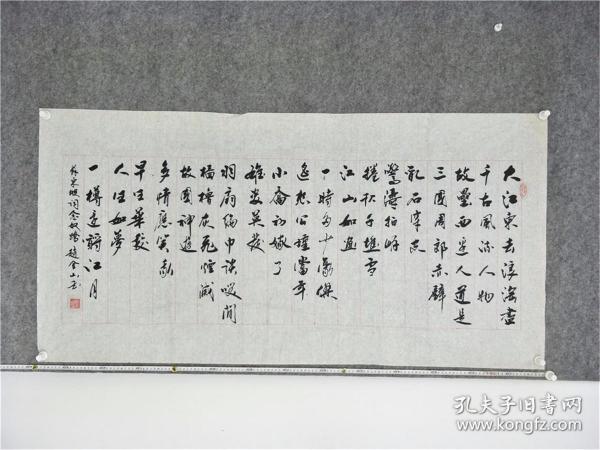 大江东去浪淘尽
千古风流人物
故垒西边人道是
三国周郎赤壁
乱石穿空
惊涛拍岸
捲起千堆雪
江山如画
一时多少豪傑
遥想公瑾当年
小乔初嫁了
雄姿英发
羽扇纶巾谈笑间
樯橹灰飞烟灭
故国神游
多情应笑我
早生华发
人生如梦
一樽还酹江月
苏东坡词念奴娇 赵金山书
孔夫子旧书网
www.kongfz.com